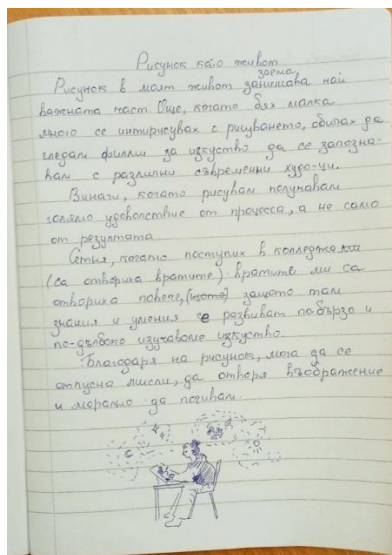 Рисунок като живот
Рисунок в моят живот занимава заема най
важната част. Още, когато бях малка
много се интирисувах с рисуването, обичах да
гледам филми за изкуство да се запозна-
вам с различни съвременни худо-ци.
Винаги, когато рисувам получавам
голямо удоволствие от процеса, а не само
от резултата.
когато поступих в колледжа
(са отвориха вратите) вратите ми са
отвориха повече, (щото) защото там
знания и умения се развиват по-бързо и
по-дълбоко изучаваме изкуство.
Благодаря на рисунок, мога да се
отпусна мисли, да отворя въображение
и морално да почивам.